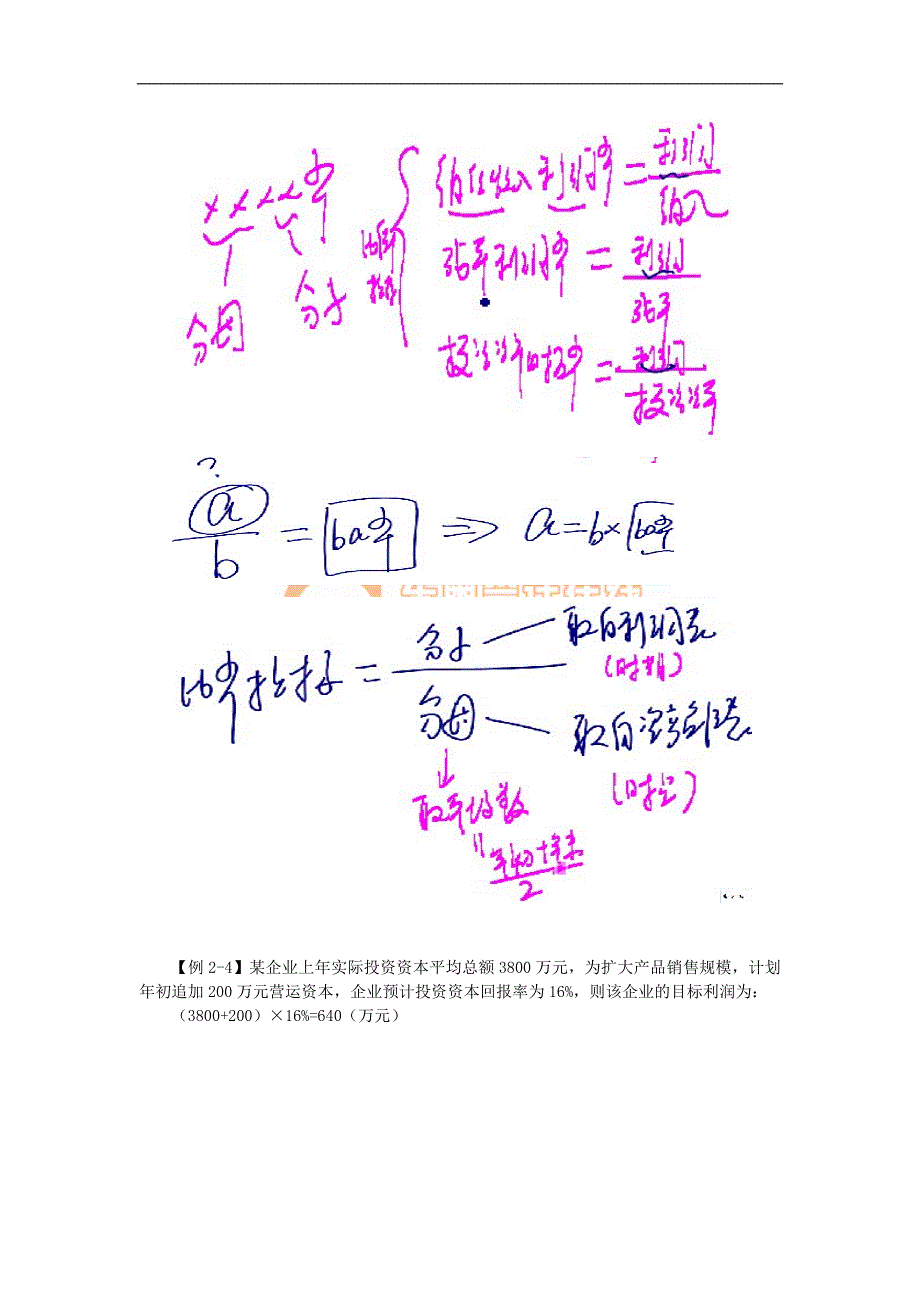 ××××率
分母 分子
比率指标
销售收入利润率=利润/销入
成本利润率=利润/成本
投资资本回报率=利润/投资资本
?
a/b = ba率 ⇒ a=b×ba率
比率指标=分子/分母
分子 — 取自利润表
(时期)
分母 — 取自资产负债表
(时点)
↓
取平均数
=(年初+年末)/2
【例2-4】某企业上年实际投资资本平均总额3800万元，为扩大产品销售规模，计划
年初追加200万元营运资本，企业预计投资资本回报率为16%，则该企业的目标利润为：
（3800+200）×16%=640（万元）